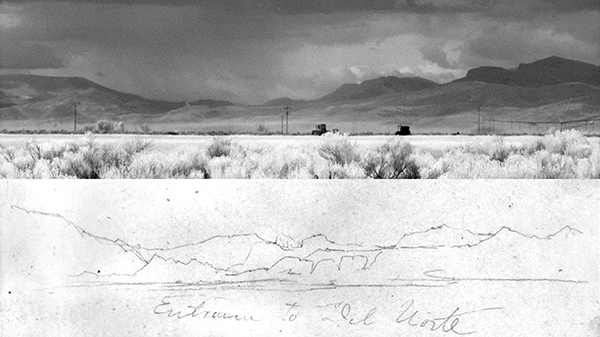 Entrance to Del Norte